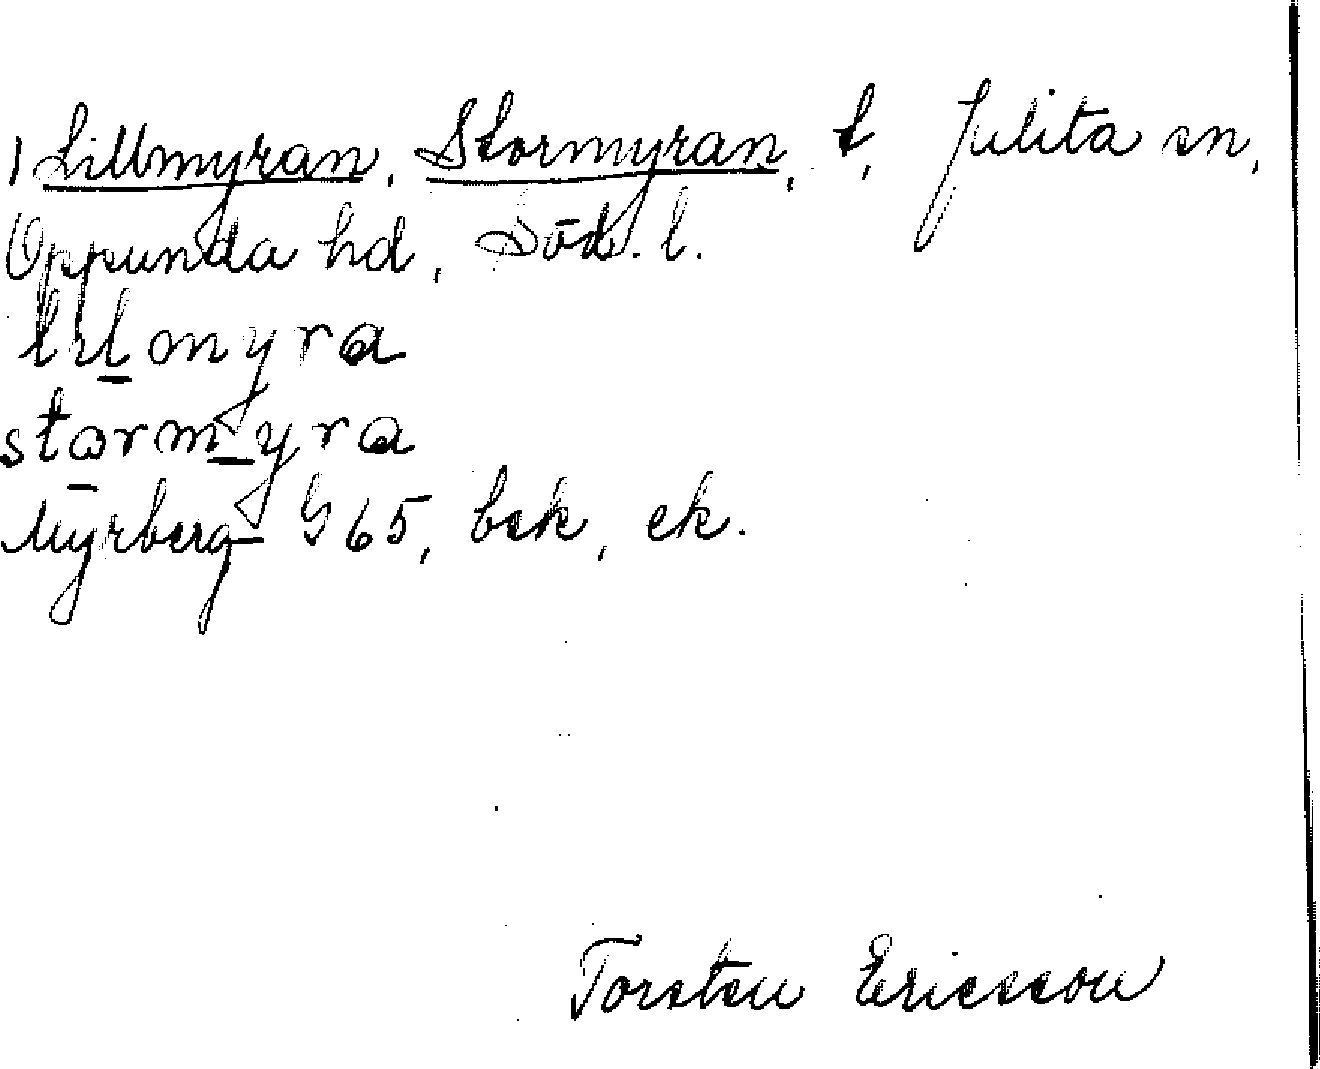 1 Lillmyran, Stormyran, t, Julita sn,
Oppunda hd, Söd. l.
lilmyra
stormyra
Myrberg G 65, bek, ek.
Torsten Ericsson